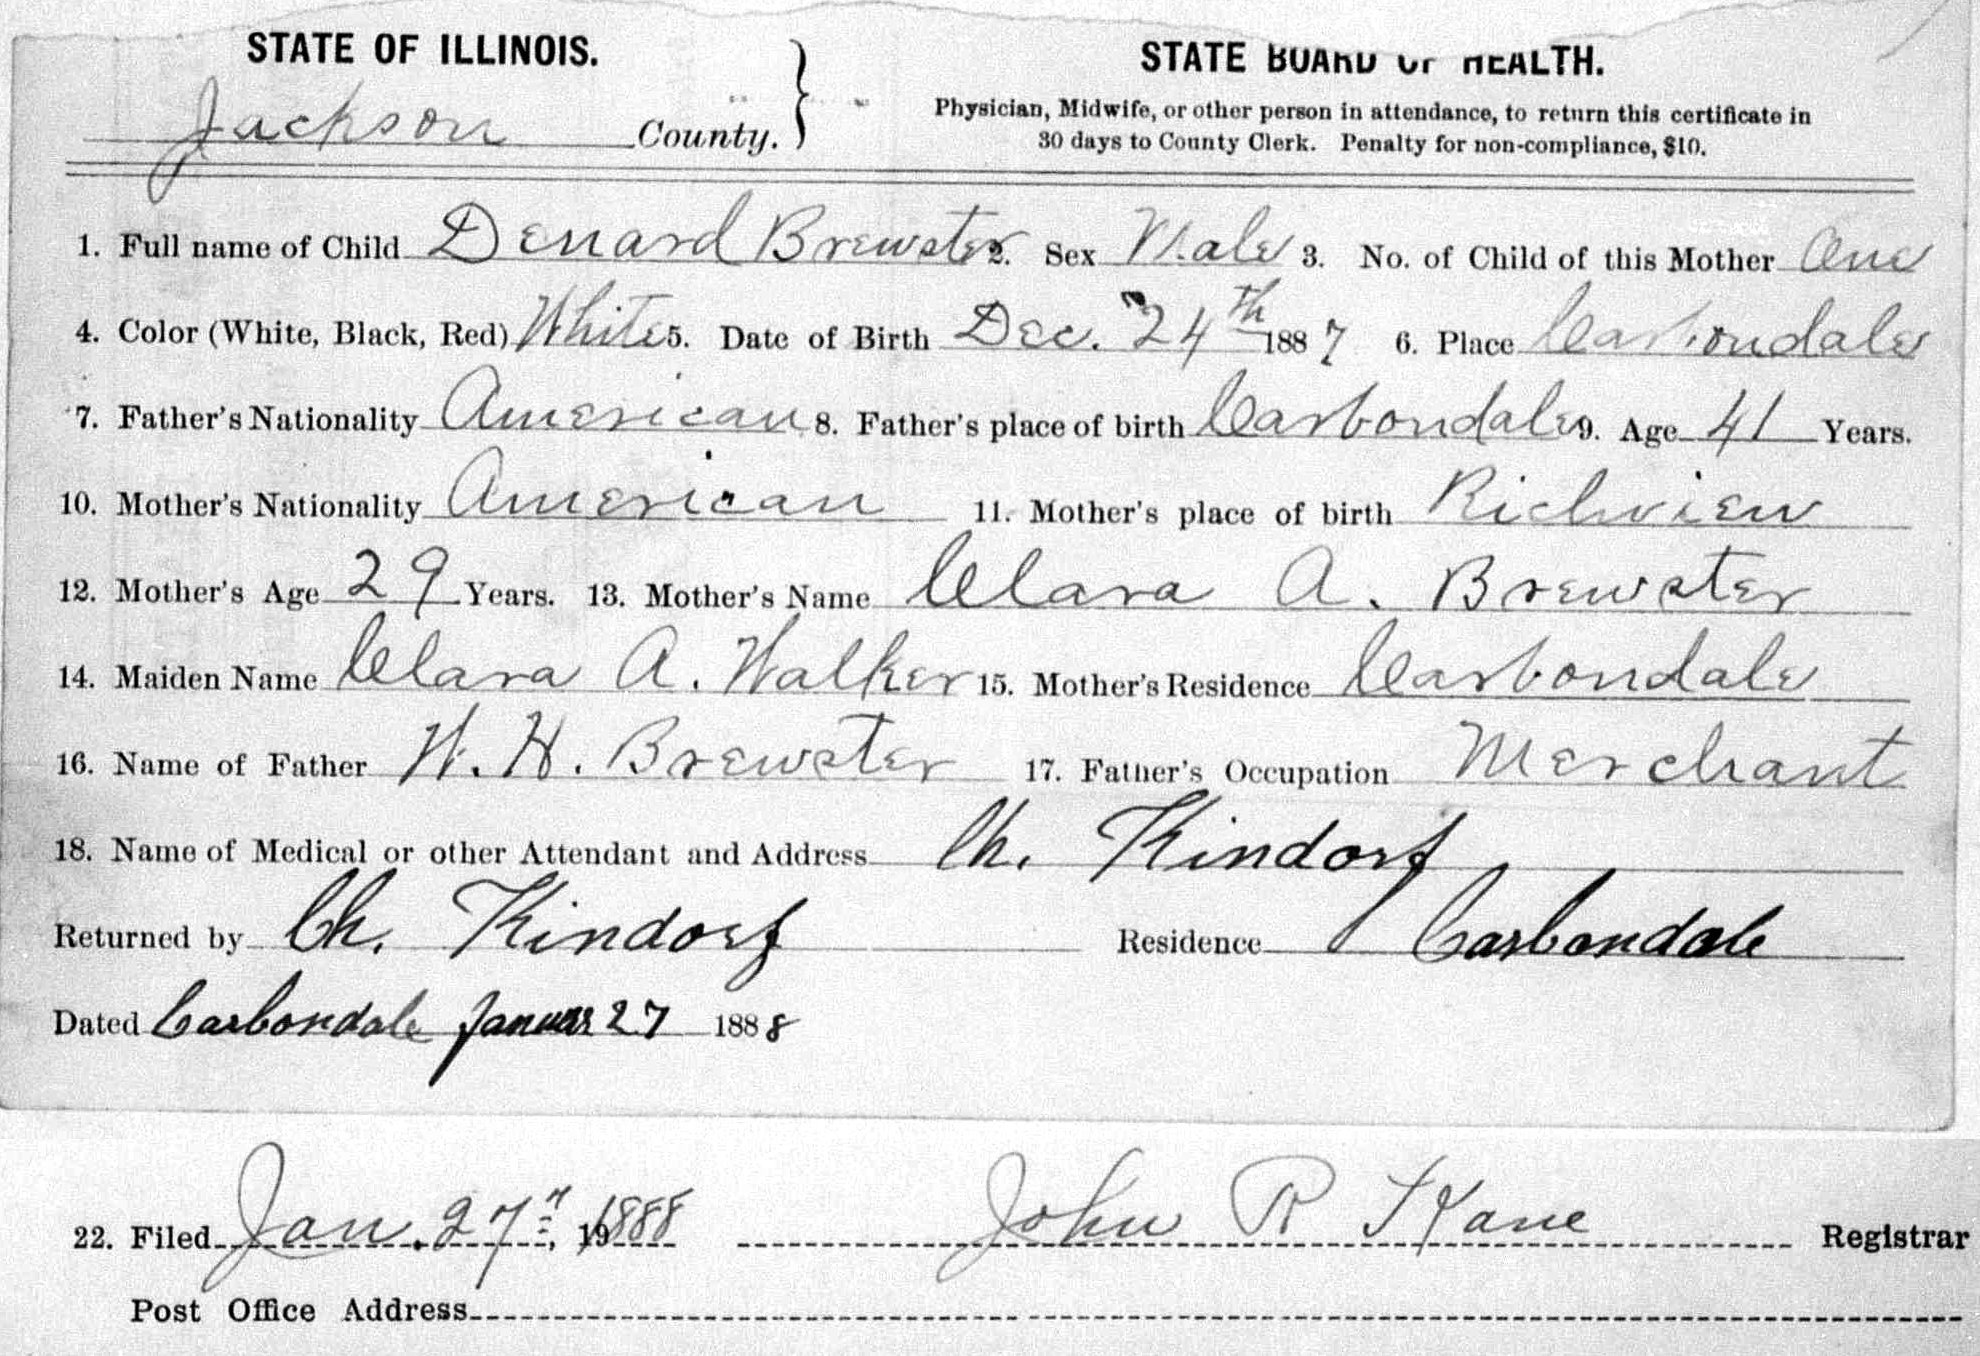 STATE OF ILLINOIS.
Jackson County.
STATE BOARD OF HEALTH.
Physician, Midwife, or other person in attendance, to return this certificate in
30 days to County Clerk. Penalty for non-compliance, $10.
1. Full name of Child Denard Brewster 2. Sex Male 3. No. of Child of this Mother One
4. Color (White, Black, Red) White 5. Date of Birth Dec. 24th 1887 6. Place Carbondale
7. Father's Nationality American 8. Father's place of birth Carbondale 9. Age 41 Years.
10. Mother's Nationality American 11. Mother's place of birth Richview
12. Mother's Age 29 Years. 13. Mother's Name Clara A. Brewster
14. Maiden Name Clara A. Walker 15. Mother's Residence Carbondale
16. Name of Father W. H. Brewster 17. Father's Occupation Merchant
18. Name of Medical or other Attendant and Address Ch. Kindorf
Returned by Ch. Kindorf Residence Carbondale
Dated Carbondale Januar 27 1888
22. Filed Jan. 27, 1888 John R Kane Registrar
Post Office Address